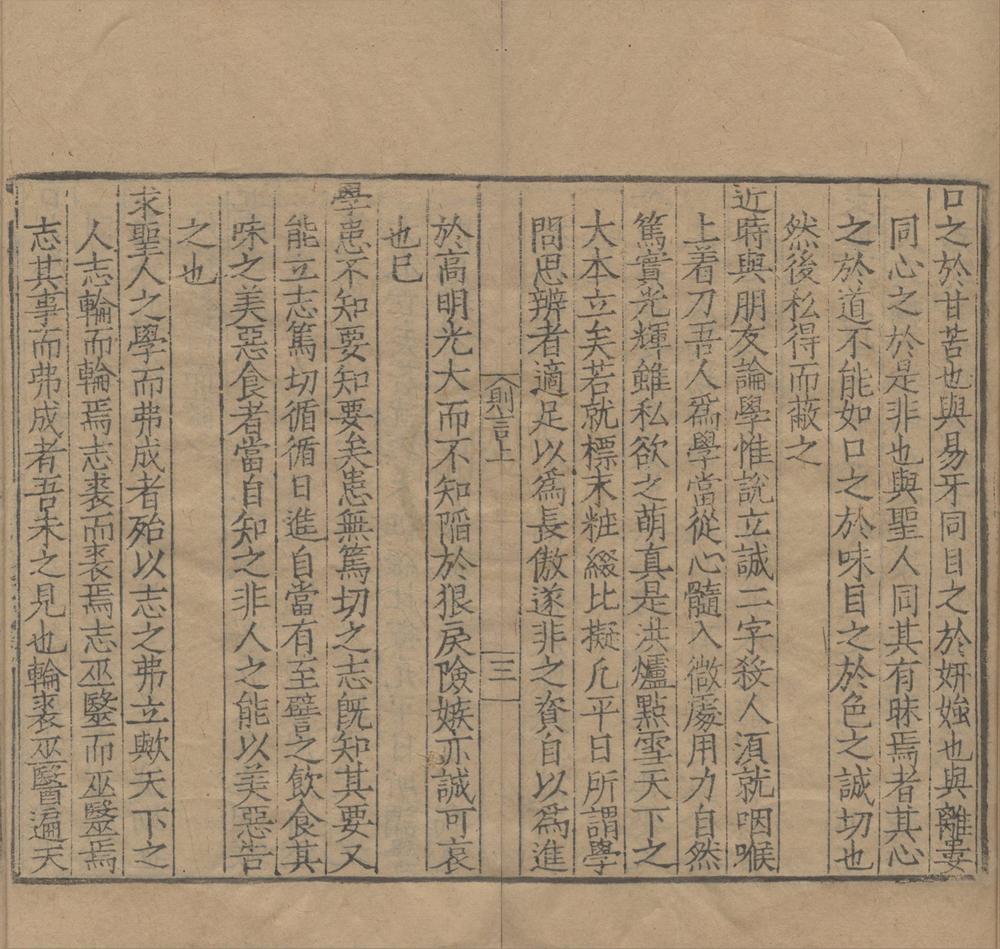 口之於甘苦也與易牙同目之於妍媸也與離婁
同心之於是非也與聖人同其有昧焉者其心
之於道不能如口之於味目之於色之誠切也
然後私得而蔽之
近時與朋友論學惟說立誠二字殺人湏就咽喉
上着刀吾人爲學當從心髓入微處用力自然
篤實光輝雖私欲之萌真是洪爐點雪天下之
大本立矣若就標末粧綴比擬凢平日所謂學
問思辨者適足以爲長傲遂非之資自以爲進
則言上
三
於高明光大而不知䧟於狠戾險嫉亦誠可哀
也已
學患不知要知要矣患無篤切之志旣知其要又
能立志篤切循循日進自當有至譬之飲食其
味之美惡食者當自知之非人之能以美惡告
之也
求聖人之學而弗成者殆以志之弗立歟天下之
人志輪而輪焉志裘而裘焉志巫毉而巫毉焉
志其事而弗成者吾未之見也輪裘巫醫遍天